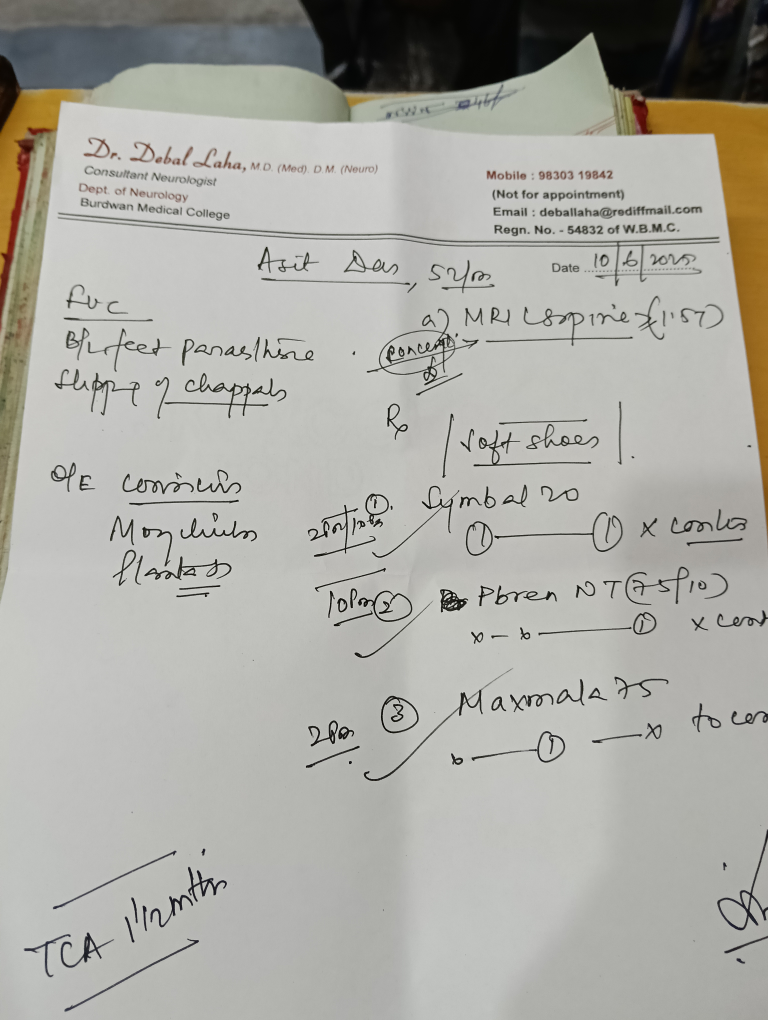 Dr. Debal Laha, M.D. (Med). D.M. (Neuro)
Consultant Neurologist
Dept. of Neurology
Burdwan Medical College
Mobile : 98303 19842
(Not for appointment)
Email : deballaha@rediffmail.com
Regn. No. - 54832 of W.B.M.C.
Asit Das, 52/m
Date 10/6/2025
FUC
B/L feet
of chappals
a) MRI LS spine (1.5T)
Rx
Soft shoes
O/E
① Symbal 20
①——① x
10Pm ② Pbren NT (75/10)
x — x ——① x
2Pm ③ Maxmala 75
x ——① —x to
TCA 1/12 mths